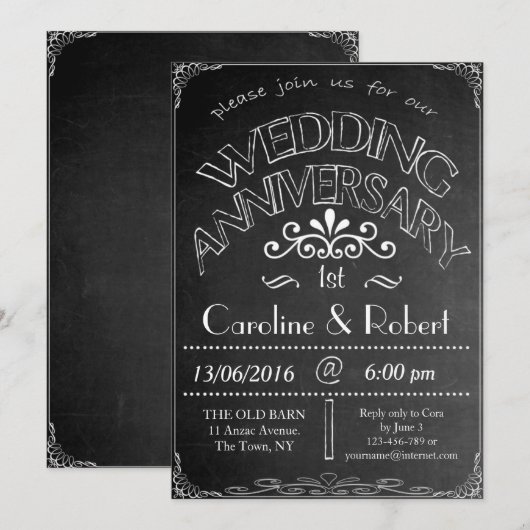 please join us for our
WEDDING
ANNIVERSARY
1st
Caroline & Robert
13/06/2016 @ 6:00 pm
THE OLD BARN
11 Anzac Avenue.
The Town, NY
Reply only to Cora
by June 3
123-456-789 or
yourname@internet.com